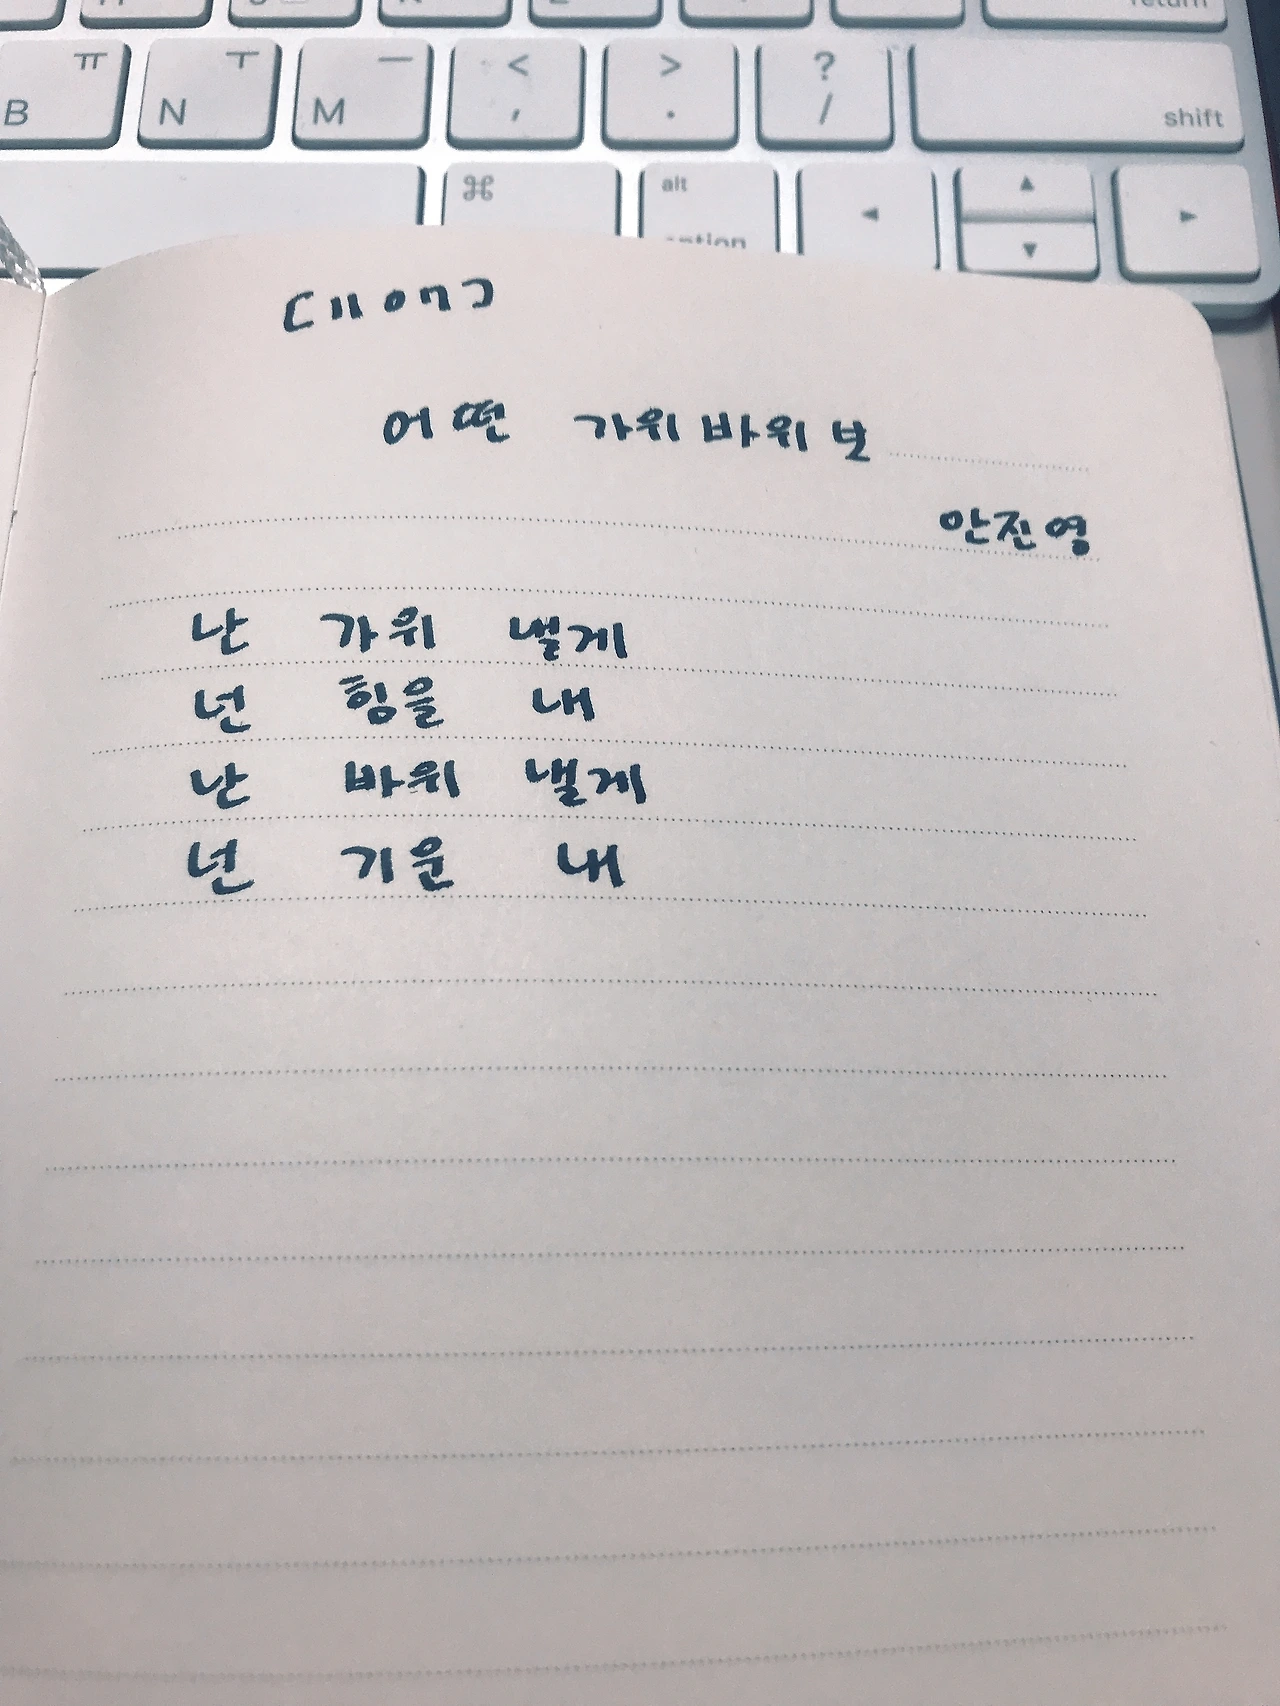 return
ㅠ ㅜ ㅡ < > ?
B N M , . / shift
⌘ alt ◀ ▲ ▶
option ▼
[1107]
어떤 가위바위보
안진영
난 가위 낼게
넌 힘을 내
난 바위 낼게
넌 기운 내